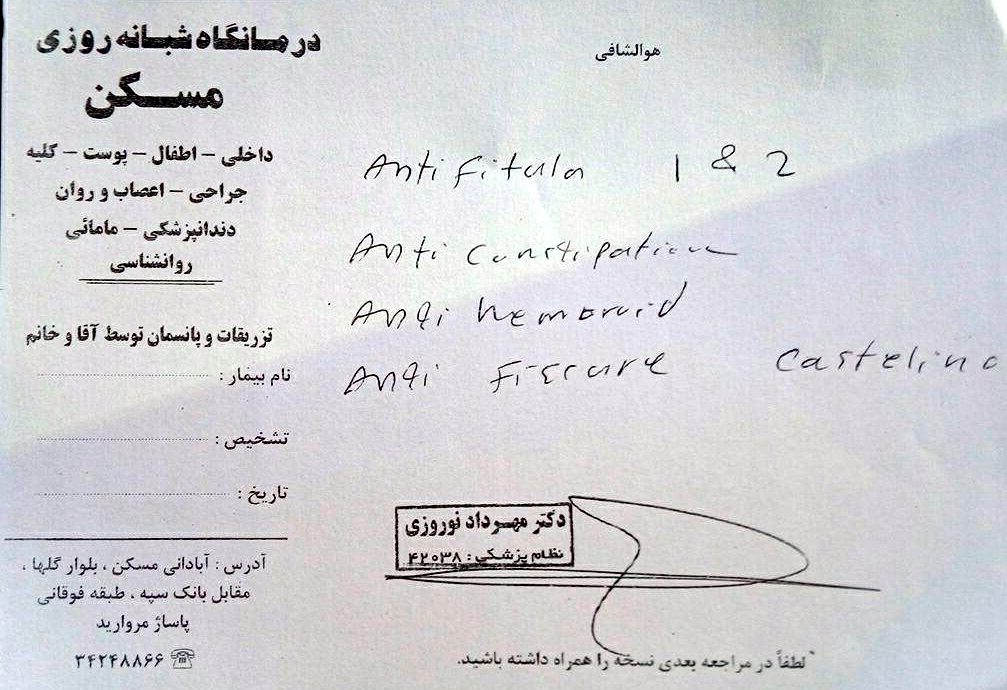 درمانگاه شبانه روزی
مسکن
داخلی - اطفال - پوست - کلیه
جراحی - اعصاب و روان
دندانپزشکی - مامائی
روانشناسی
تزریقات و پانسمان توسط آقا و خانم
نام بیمار :
تشخیص :
تاریخ :
آدرس : آبادانی مسکن ، بلوار گلها ،
مقابل بانک سپه ، طبقه فوقانی
پاساژ مروارید
☏ ۳۴۲۴۸۸۶۶
هوالشافی
Anti fitula 1 & 2
Anti constipation
Anti hemoroid
Anti Fissure Castelino
دکتر مهرداد نوروزی
نظام پزشکی : ۴۲۰۳۸
لطفاً در مراجعه بعدی نسخه را همراه داشته باشید.